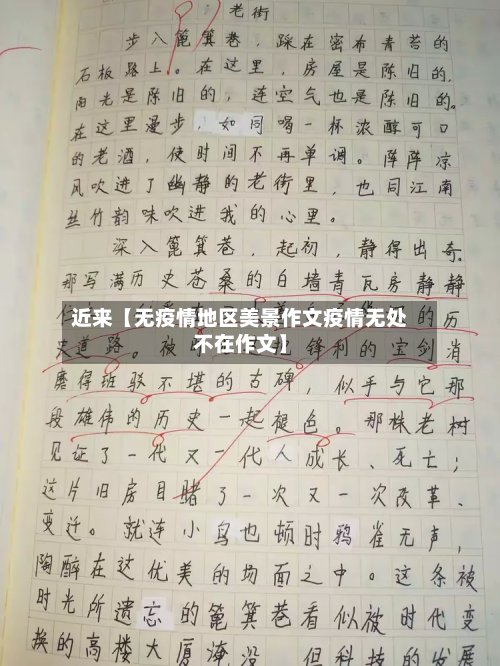 老街
步入篦箕巷，踩在密布青苔的
石板路上。在这里，房屋是陈旧的，
阳光是陈旧的，连空气也是陈旧的。
在这里漫步，如同喝一杯浓醇可口
的老酒，使时间不再单调。阵阵凉
风吹进了幽静的老街里，也同江南
丝竹韵味吹进我的心里。
深入篦箕巷，起初，静得出奇。
那写满历史苍桑的白墙青瓦房静静
近来【无疫情地区美景作文疫情无处
不在作文】
的历
史道路。被时 锋利的宝剑消
磨得班驳不堪的古碑，似乎与它那
段雄伟的历史一起褪色。那株老树
见证了一代又一代人成长、死亡；
这片旧房目睹了一次又一次改革、
变迁。就连小鸟也顿时鸦雀无声，
陶醉在这优美的场面之中。这条被
时光所遗忘的篦箕巷看似被时代变
换的高楼大厦淹没，但科技的发展